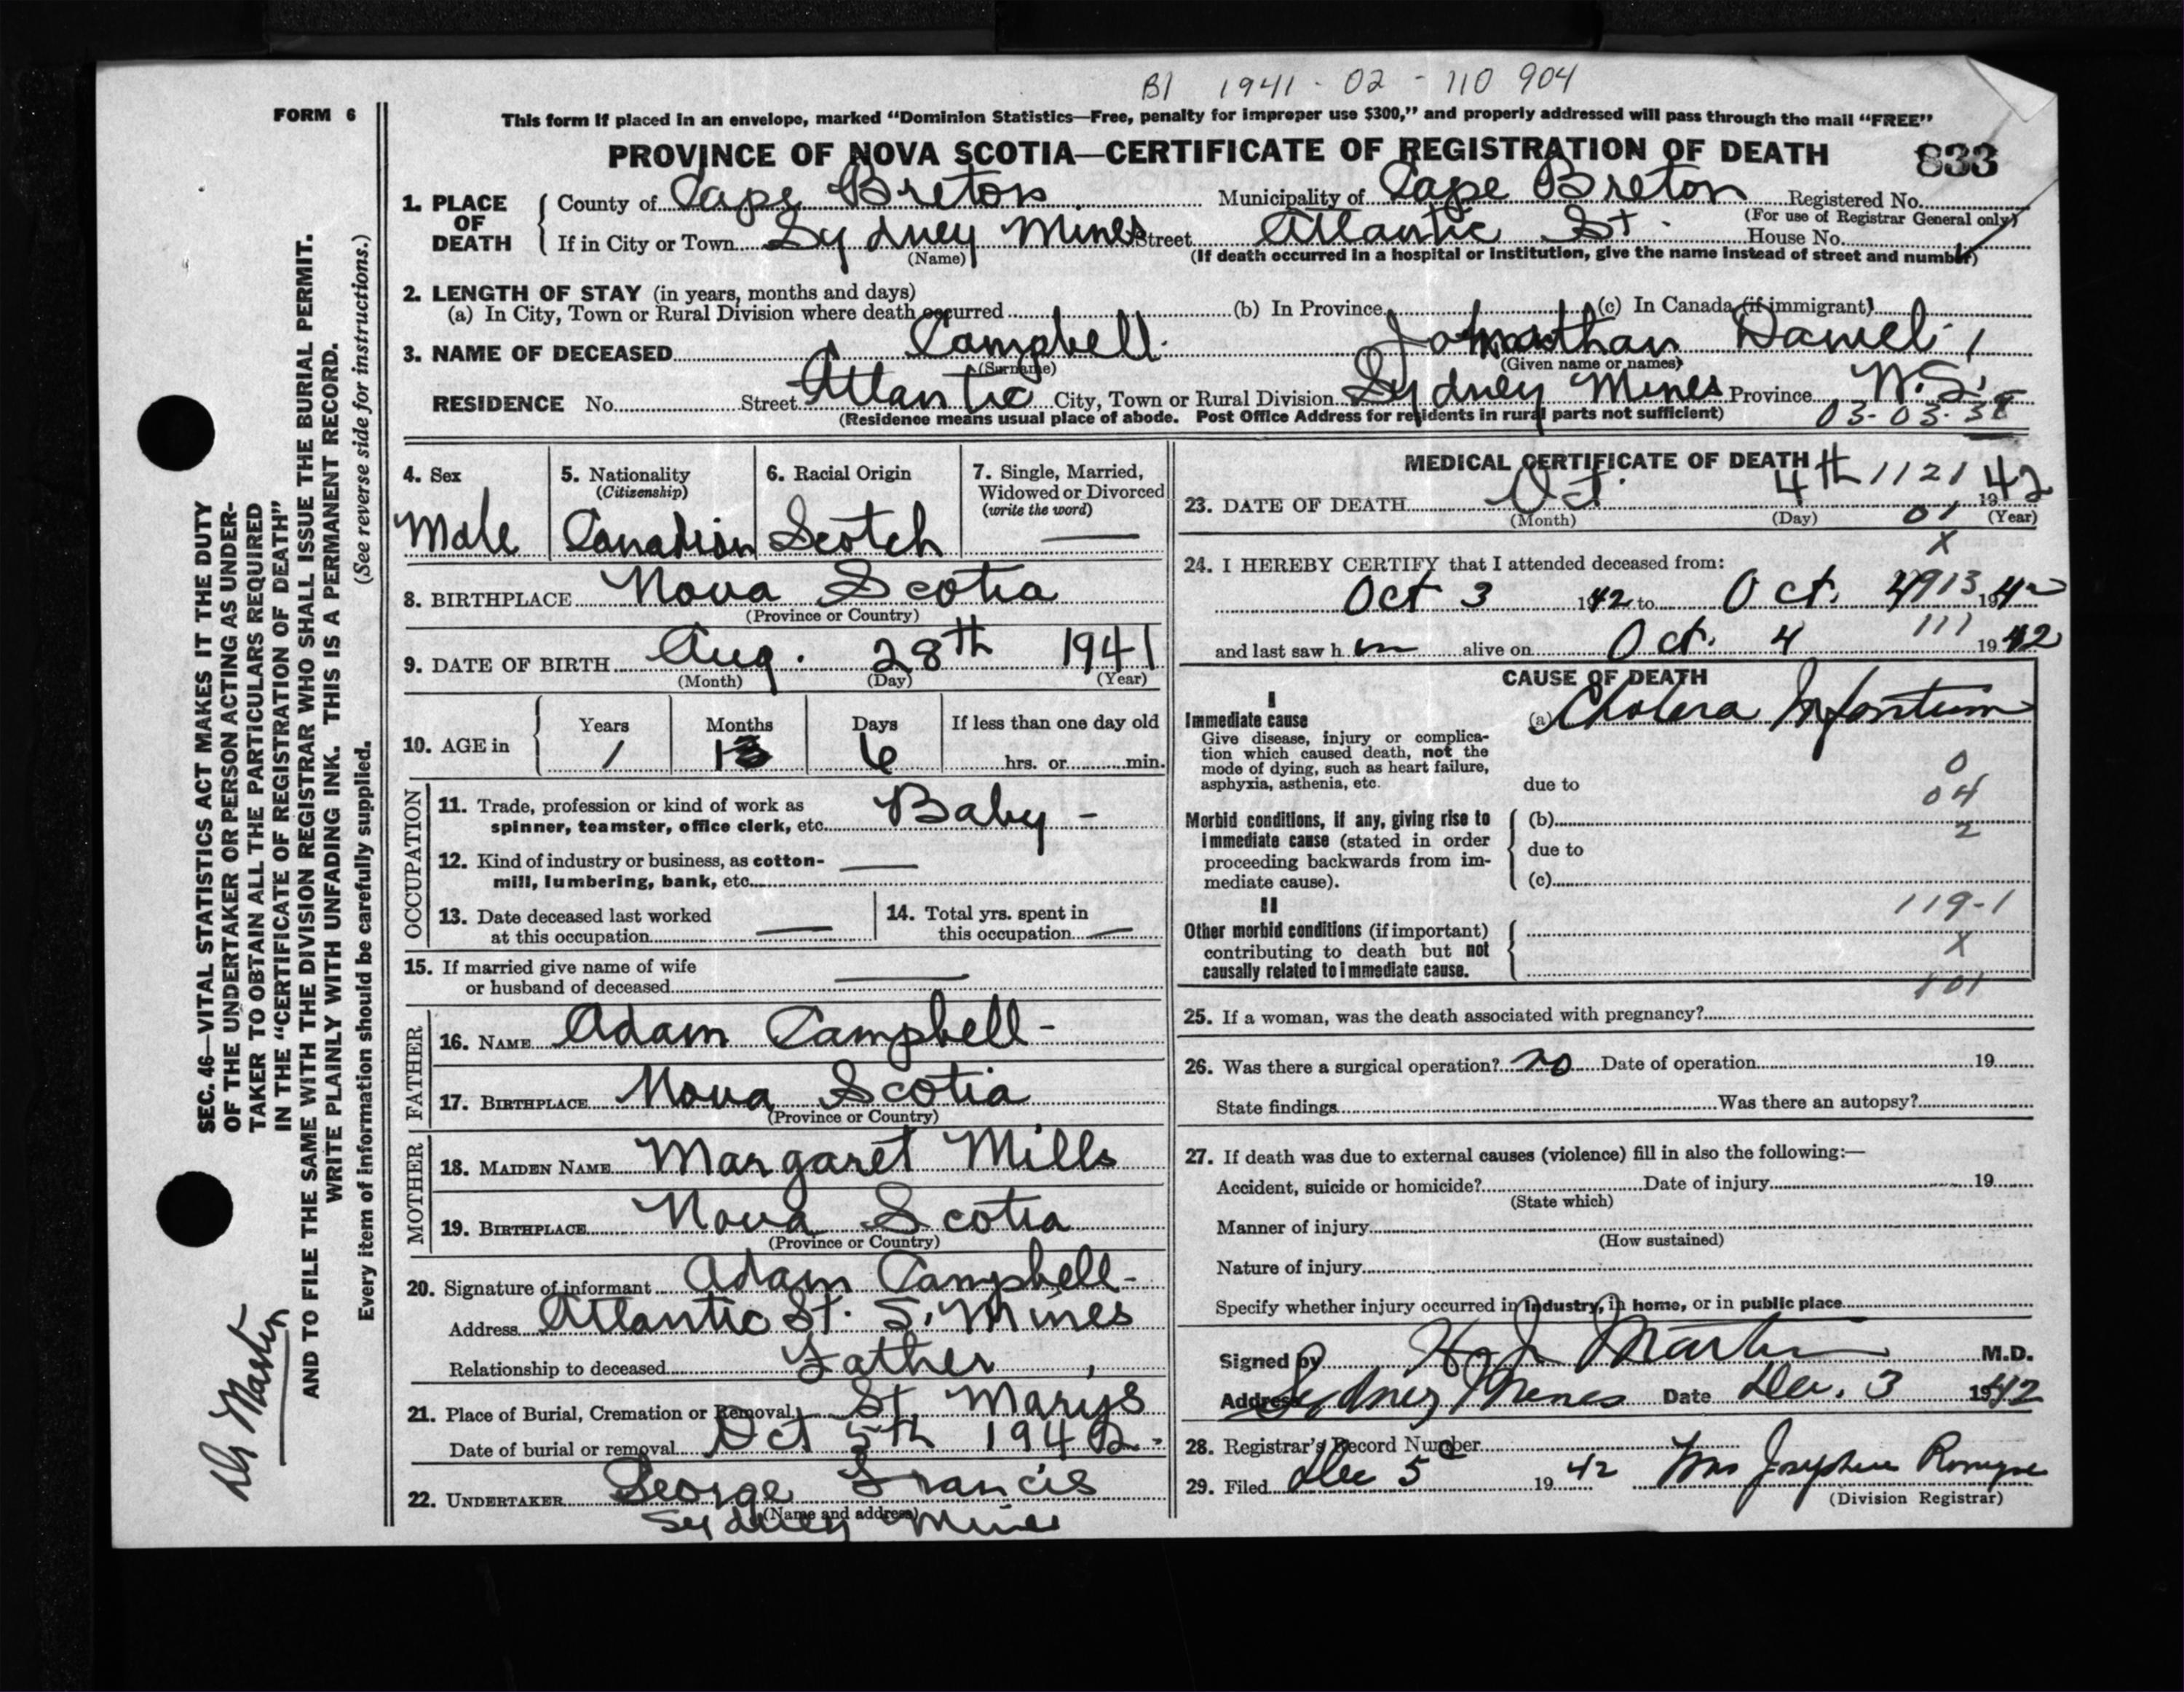 B1 1941-02-110 904
FORM 6
This form if placed in an envelope, marked "Dominion Statistics—Free, penalty for improper use $300," and properly addressed will pass through the mail "FREE"
PROVINCE OF NOVA SCOTIA—CERTIFICATE OF REGISTRATION OF DEATH 833
1. PLACE OF DEATH
County of Cape Breton Municipality of Cape Breton Registered No.
(For use of Registrar General only)
If in City or Town Sydney Mines Street Atlantic St. House No.
(Name) (If death occurred in a hospital or institution, give the name instead of street and number)
2. LENGTH OF STAY (in years, months and days)
(a) In City, Town or Rural Division where death occurred (b) In Province (c) In Canada (if immigrant)
3. NAME OF DECEASED Campbell Johnathan Daniel
(Surname) (Given name or names)
RESIDENCE No. Street Atlantic City, Town or Rural Division Sydney Mines Province N.S.
(Residence means usual place of abode. Post Office Address for residents in rural parts not sufficient) 03-03-38
4. Sex Male
5. Nationality (Citizenship) Canadian
6. Racial Origin Scotch
7. Single, Married, Widowed or Divorced (write the word) —
8. BIRTHPLACE Nova Scotia
(Province or Country)
9. DATE OF BIRTH Aug. 28th 1941
(Month) (Day) (Year)
10. AGE in Years Months Days If less than one day old
1 1 6 hrs. or min.
OCCUPATION
11. Trade, profession or kind of work as spinner, teamster, office clerk, etc. Baby -
12. Kind of industry or business, as cotton-mill, lumbering, bank, etc. —
13. Date deceased last worked at this occupation —
14. Total yrs. spent in this occupation —
15. If married give name of wife or husband of deceased —
FATHER
16. NAME Adam Campbell -
17. BIRTHPLACE Nova Scotia
(Province or Country)
MOTHER
18. MAIDEN NAME Margaret Mills
19. BIRTHPLACE Nova Scotia
(Province or Country)
20. Signature of informant Adam Campbell -
Address Atlantic St. S. Mines
Relationship to deceased Father
21. Place of Burial, Cremation or Removal St. Marys
Date of burial or removal Oct 5th 1942.
22. UNDERTAKER George Francis
(Name and address)
Sydney Mines
MEDICAL CERTIFICATE OF DEATH
23. DATE OF DEATH Oct. 4th 1121 1942
(Month) (Day) 01 (Year)
X
24. I HEREBY CERTIFY that I attended deceased from:
Oct 3 1942 to Oct. 4 913 1942
and last saw h im alive on Oct. 4 111 1942
CAUSE OF DEATH
I
Immediate cause (a) Cholera Infantum
Give disease, injury or complication which caused death, not the mode of dying, such as heart failure, asphyxia, asthenia, etc.
0
due to 04
Morbid conditions, if any, giving rise to immediate cause (stated in order proceeding backwards from immediate cause).
(b) 2
due to
(c)
II 119-1
Other morbid conditions (if important) contributing to death but not causally related to immediate cause.
X
101
25. If a woman, was the death associated with pregnancy?
26. Was there a surgical operation? no Date of operation 19
State findings Was there an autopsy?
27. If death was due to external causes (violence) fill in also the following:—
Accident, suicide or homicide? Date of injury 19
(State which)
Manner of injury
(How sustained)
Nature of injury
Specify whether injury occurred in industry, in home, or in public place
Signed by Martin M.D.
Address Sydney Mines Date Dec. 3 1942
28. Registrar's Record Number
29. Filed Dec 5 1942 Mrs Josephine
(Division Registrar)
SEC. 46—VITAL STATISTICS ACT MAKES IT THE DUTY
OF THE UNDERTAKER OR PERSON ACTING AS UNDER-
TAKER TO OBTAIN ALL THE PARTICULARS REQUIRED
IN THE "CERTIFICATE OF REGISTRATION OF DEATH"
AND TO FILE THE SAME WITH THE DIVISION REGISTRAR WHO SHALL ISSUE THE BURIAL PERMIT.
WRITE PLAINLY WITH UNFADING INK. THIS IS A PERMANENT RECORD.
Every item of information should be carefully supplied. (See reverse side for instructions.)
Dr Martin